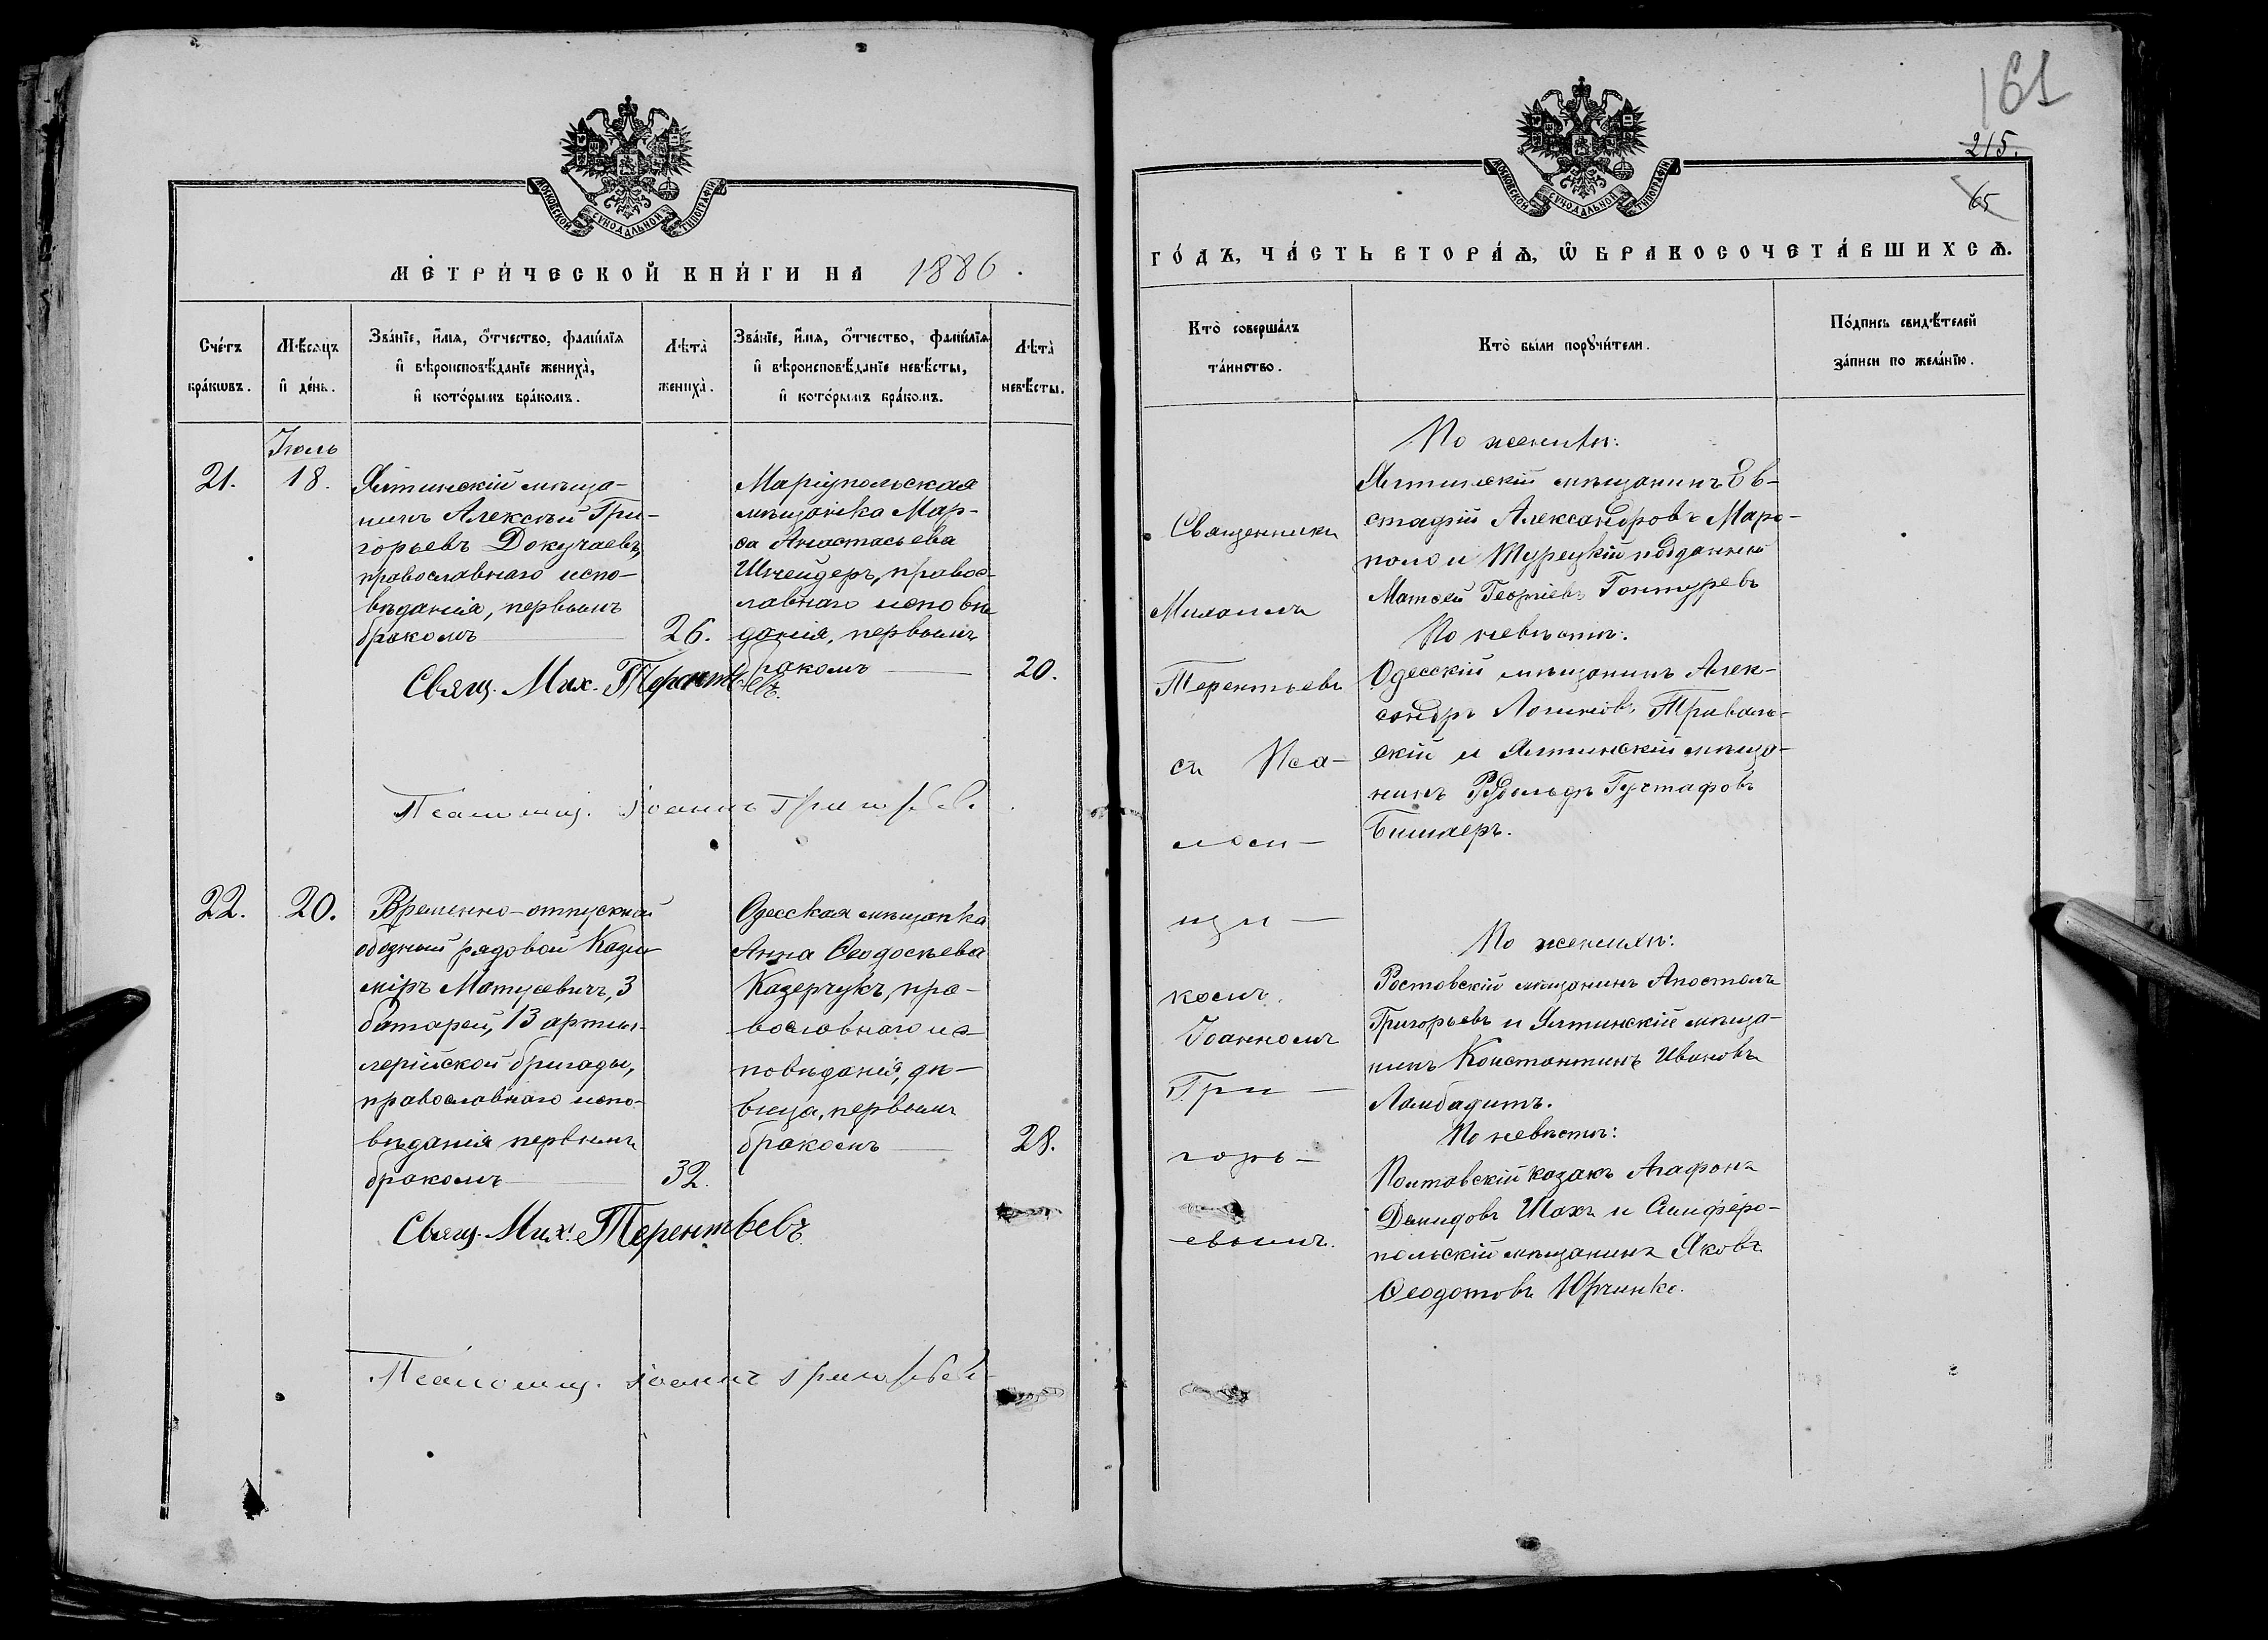 161
215.
65
МОСКОВСКОЙ СѴНОДАЛЬНОЙ ТИПОГРАФІИ
МЕТРИ́ЧЕСКОЙ КНИ́ГИ НА 1886.
Сче́тъ
бра́кѡвъ.
Мѣ́сяцъ
и҆ де́нь.
Зва́нїе, и҆́мѧ, ѻ҆́тчество, фами́лїѧ
и҆ вѣроисповѣ́данїе жениха̀,
и҆ кото́рымъ бра́комъ.
Лѣта̀
жениха̀.
Зва́нїе, и҆́мѧ, ѻ҆́тчество, фами́лїѧ
и҆ вѣроисповѣ́данїе невѣ́сты,
и҆ кото́рымъ бра́комъ.
Лѣта̀
невѣ́сты.
Іюль
21.
18.
Ялтинскій мѣща-
нинъ Алексѣй Гри-
горьевъ Докучаевъ,
православнаго испо-
вѣданія, первымъ
бракомъ
26.
Маріупольская
мѣщанка Мар-
ѳа Анастасьева
Шнейдеръ, правос-
лавнаго исповѣ
данія, первымъ
бракомъ
20.
Свящ. Мих. Терентьевъ.
Псаломщ. Іоаннъ Григорьевъ.
22.
20.
Временно-отпускной
обозный рядовой Кази-
міръ Матусевичъ, 3
батареи, 13 артил-
лерійской бригады,
православнаго испо-
вѣданія первымъ
бракомъ
32.
Одесская мѣщанка
Анна Ѳеодосьева
Казерчукъ, пра-
вославнаго ис-
повѣданія, дѣ-
вица, первымъ
бракомъ
28.
Свящ. Мих. Терентьевъ.
Псаломщ. Іоаннъ Григорьевъ
МОСКОВСКОЙ СѴНОДАЛЬНОЙ ТИПОГРАФІИ
ГО́ДЪ, ЧА́СТЬ ВТОРА́Ѧ, Ѡ҆ БРАКОСОЧЕТА́ВШИХСѦ.
Кто̀ соверша́лъ
та́инство.
Кто̀ бы́ли порꙋчи́тели.
По́дпись свидѣ́телей
за́писи по жела́нїю.
Священникъ
Михаилъ
Терентьевъ
съ Пса-
лом-
щи-
комъ
Іоанномъ
Гри-
горь-
евымъ.
По женихѣ:
Ялтинскій мѣщанинъ Ев-
стафій Александровъ Маро-
поло и Турецкій подданный
Матѳей Георгіевъ Гонтуревъ
По невѣстѣ:
Одесскій мѣщанинъ Алек-
сандръ Логиновъ Триваль-
скій и Ялтинскій мѣща-
нинъ Рудольфъ Густафовъ
Бишлеръ.
По женихѣ:
Ростовскій мѣщанинъ Апостолъ
Григорьевъ и Ялтинскій мѣща-
нинъ Константинъ Ивановъ
Ламбадитъ.
По невѣстѣ:
Полтавскій казакъ Агафонъ
Демидовъ Шахъ и Симферо-
польскій мѣщанинъ Яковъ
Ѳеодотовъ Юрченко.